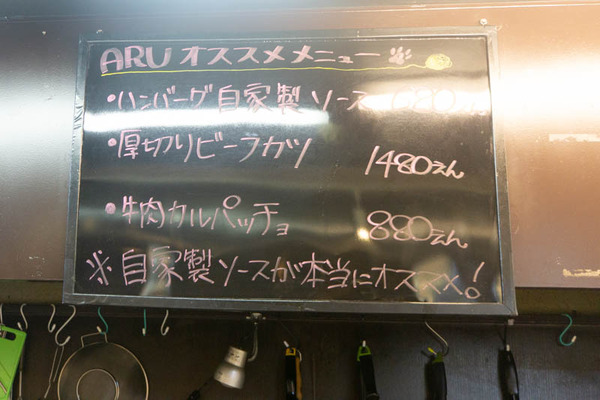 ARU オススメメニュー
・ハンバーグ自家製ソース 680えん
・厚切りビーフカツ 1480えん
・牛肉カルパッチョ 880えん
※自家製ソースが本当にオススメ!